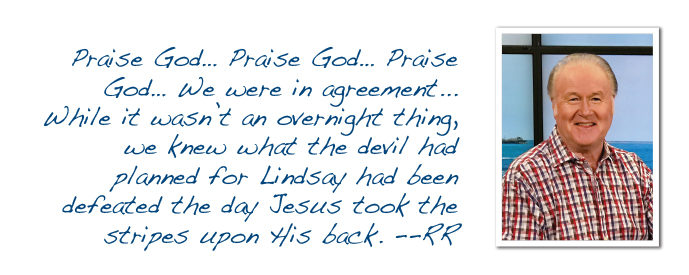 Praise God... Praise God... Praise
God... We were in agreement...
While it wasn't an overnight thing,
we knew what the devil had
planned for Lindsay had been
defeated the day Jesus took the
stripes upon His back. --RR